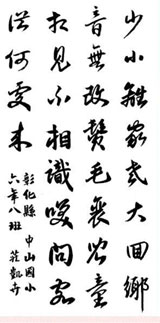 少小離家老大回鄉
音無改鬢毛衰兒童
相見不相識笑問客
從何處來
彰化縣 中山國小
六年八班 莊凱卉